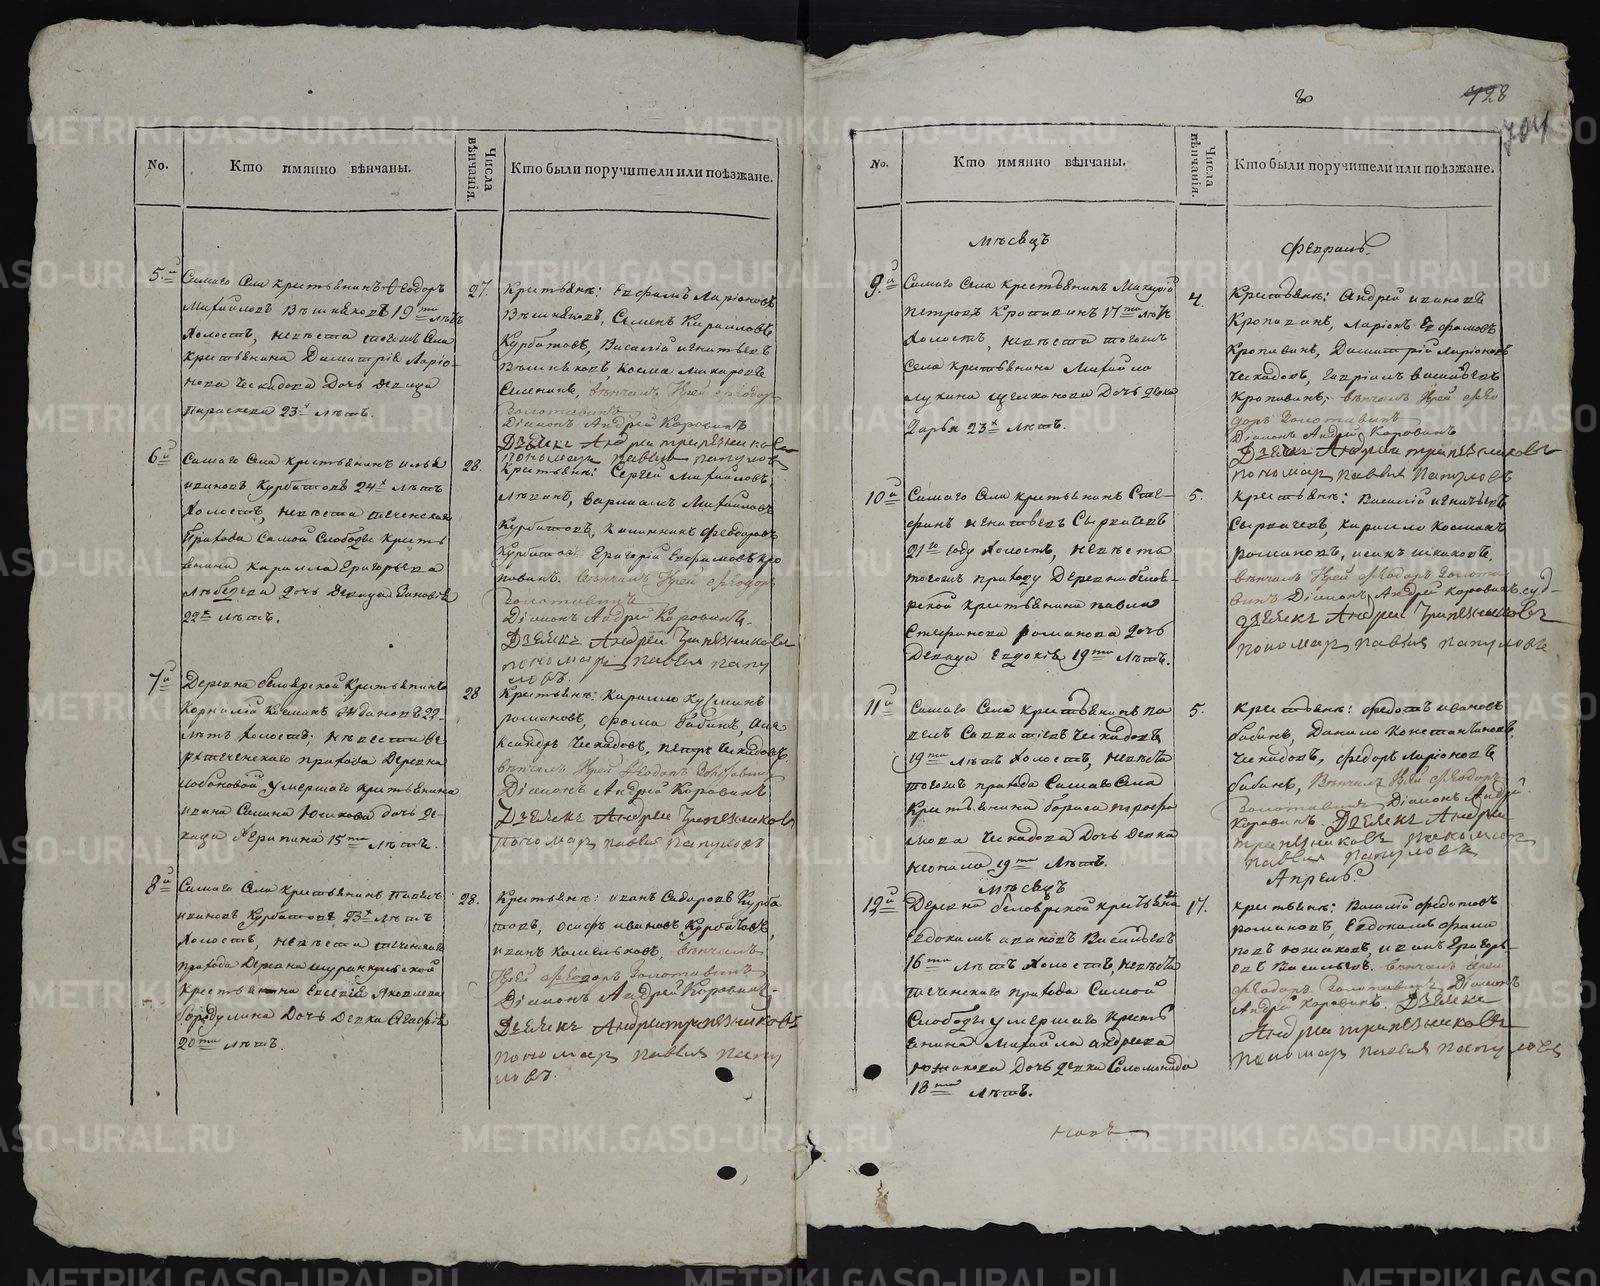 No.
Кто имянно вѣнчаны.
Числа вѣнчанія.
Кто были поручители или поѣзжане.
5.й
Самаго Села крестьянинъ Ѳеодоръ
Михайловъ Вѣшняковъ 19ти лѣтъ
холостъ, невѣста тогожъ Села
крестьянина Димитрія Ларіо-
нова Чекадова дочь девица
Параскева 23х лѣтъ.
27.
Крестьяне: Евфимъ Ларіоновъ
Вѣшняковъ, Семенъ Кириловъ
Курбатовъ, Василій Игнатьевъ
Вѣшняковъ, Косма Макаровъ
вѣнчалъ Іерей Ѳеодоръ
Золотавинъ
Діаконъ Андрей Коровинъ
Дьячекъ Андрей Трапезниковъ
пономарь Павелъ Папуловъ
6.й
Самаго Села крестьянинъ Илья
Ивановъ Курбатовъ 24х лѣтъ
холостъ, невѣста Теченскаго
Прихода Самой Слободы кресть
янина Карилла Григорьева
дочь Девица Зиновія
22х лѣтъ.
28.
Крестьяне: Сергей Михайловъ
Варлаамъ Михайловъ
Курбатовъ, Феодоровъ
Курбатовъ Григорій Евфимовъ Кро
пивинъ. Вѣнчалъ Іерей Ѳеодоръ
Золотавинъ
Діаконъ Андрей Коровинъ.
Дьячекъ Андрей Трапезниковъ
пономарь Павелъ Папу
ловъ.
7й
Деревни Белоярской Крестьянинъ
Корнилій Косминъ Ждановъ 22
лѣтъ холостъ; невѣста Ве
рхтеченскаго прихода Деревни
Лобановой умершаго крестьянина
Ивана Савина Южакова дочь де-
вица Агрипина 15ти лѣтъ.
28
Крестьяне: Карилло Кузминъ
Романовъ, Фома Бабинъ, Але
ксандръ Чекадовъ, Петръ Чекадовъ.
вѣнчалъ Іерей Ѳеодоръ Золотавинъ
Діаконъ Андрей Коровинъ
Дьячекъ Андрей Трапезниковъ
пономарь Павелъ Папуловъ
8й
Самаго Села крестьянинъ Павелъ
Ивановъ Курбатовъ 23х лѣтъ
холостъ, невѣста Теченскаго
прихода Деревни Муранкульской
крестьянина Евсевія Яковлева
Бородулина Дочь Девка Агафія
20ти лѣтъ.
28.
Крестьяне: Иванъ Сидоровъ Курба
товъ, Осифъ Ивановъ Курбатовъ,
Иванъ вѣнчалъ
Іерей Ѳеодоръ Золотавинъ
Діаконъ Андрей Коровинъ.
Дьячекъ Андрей Трапезниковъ
пономарь Павелъ Папу
ловъ.
80
728
704
No.
Кто имянно вѣнчаны.
Числа вѣнчанія.
Кто были поручители или поѣзжане.
Мѣсяцъ
Февраль.
9.й
Самаго Села крестьянинъ Макарій
Петровъ Кропивинъ 17ти лѣтъ
холостъ, невѣста тогожъ
Села крестьянина Михайла
Лукина Щелканова Дочь Девка
Дарья 23х лѣтъ.
4.
Крестьяне: Андрей Ивановъ
Кропивинъ, Ларіонъ Евфимовъ
Кропивинъ, Димитрій Ларіоновъ
Чекадовъ, Гавріилъ Васильевъ
Кропивинъ, вѣнчалъ Іерей Ѳео
доръ Золотавинъ
Діаконъ Андрей Коровинъ
Дьячекъ Андрей Трапезниковъ
пономарь Павелъ Папуловъ
10й
Самаго Села крестьянинъ Сте-
фанъ Игнатьевъ Сыркачевъ
21го году холостъ, невѣста
тогожъ приходу Деревни Белоя-
рской крестьянина Павла
Стефанова Романова дочь
Девица Евдокія 19ти лѣтъ.
5.
Крестьяне: Василій Игнатьевъ
Сыркачевъ, Карилло Косминъ
Романовъ, Исакъ
вѣнчалъ Іерей Ѳеодоръ Золота
винъ Діаконъ Андрей Коровинъ.
Дьячекъ Андрей Трапезниковъ
пономарь Павелъ Папуловъ
11й
Самаго Села крестьянинъ Па
велъ Савватіевъ Чекадовъ
19ти лѣтъ холостъ, невѣста
тогожъ прихода Самаго Села
Крестьянина Бориса Трофи
мова Чекадова Дочь Девка
Неонила 19ти лѣтъ.
5.
Крестьяне: Федотъ Ивановъ
Бабинъ, Данило Константиновъ
Чекадовъ, Федоръ Ларіоновъ
Бабинъ, Вѣнчалъ Іерей Ѳеодоръ
Золотавинъ Діаконъ Андрей
Коровинъ. Дьячекъ Андрей
Трапезниковъ пономарь
Павелъ Папуловъ
Мѣсяцъ
Апрель.
12й
Деревни Белоярской крестьянинъ
Евдокимъ Ивановъ Васильевъ
16ти лѣтъ холостъ, невѣста
Теченскаго прихода Самой
Слободы умершаго кресть
янина Михайла Андреева
Южакова Дочь девка Соломанида
18ти лѣтъ.
17.
Крестьяне: Василій Федотовъ
Романовъ, Евдокимъ Фили
повъ Южаковъ, Иванъ Григорь-
евъ Васильевъ. Вѣнчалъ Іерей
Ѳеодоръ Золотавинъ Діаконъ
Андрей Коровинъ. Дьячекъ
Андрей Трапезниковъ
пономарь Павелъ Папуловъ
METRIKI.GASO-URAL.RU